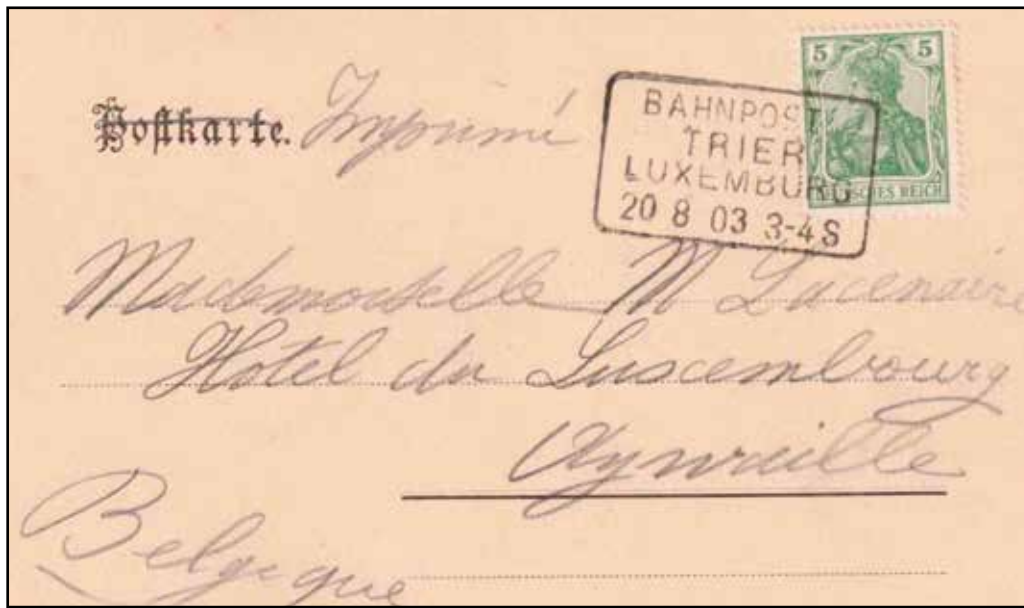 5 5
Postkarte. Imprimé
BAHNPOST
TRIER
LUXEMBURG
20 8 03 3-4S
DEUTSCHES REICH
Mademoiselle M Lacenaire
Hôtel du Luxembourg
Aywaille
Belgique